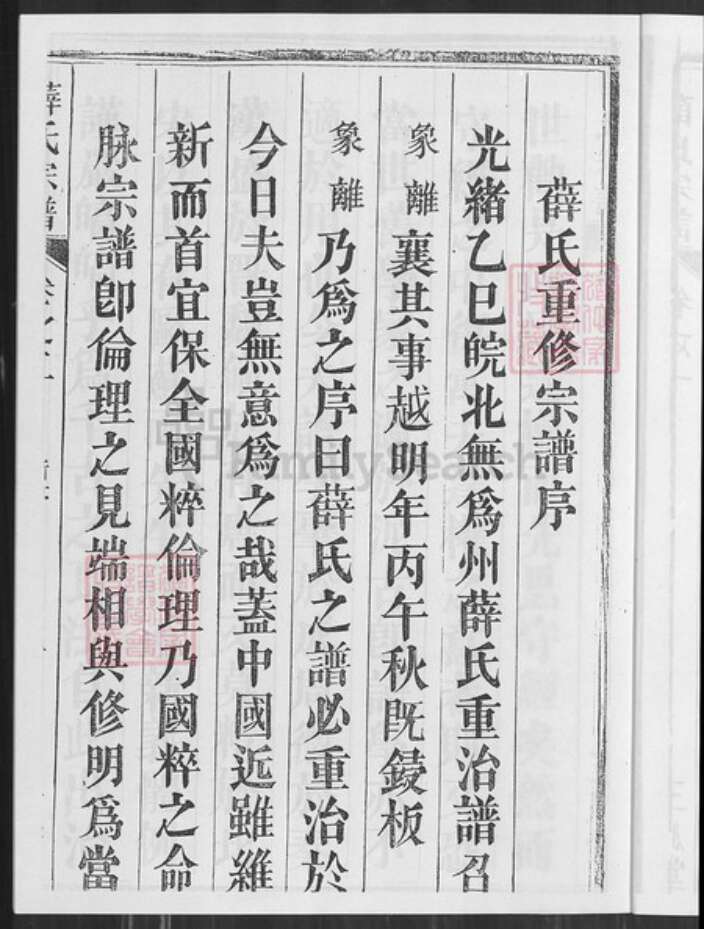 薛氏重修宗譜序
光緒乙巳皖北無爲州薛氏重治譜召
象離襄其事越明年丙午秋旣鋟板
象離乃爲之序曰薛氏之譜必重治於
今日夫豈無意爲之哉蓋中國近雖維
新而首宜保全國粹倫理乃國粹之命
脉宗譜卽倫理之見端相與修明爲當
薛氏宗譜
FamilySearch